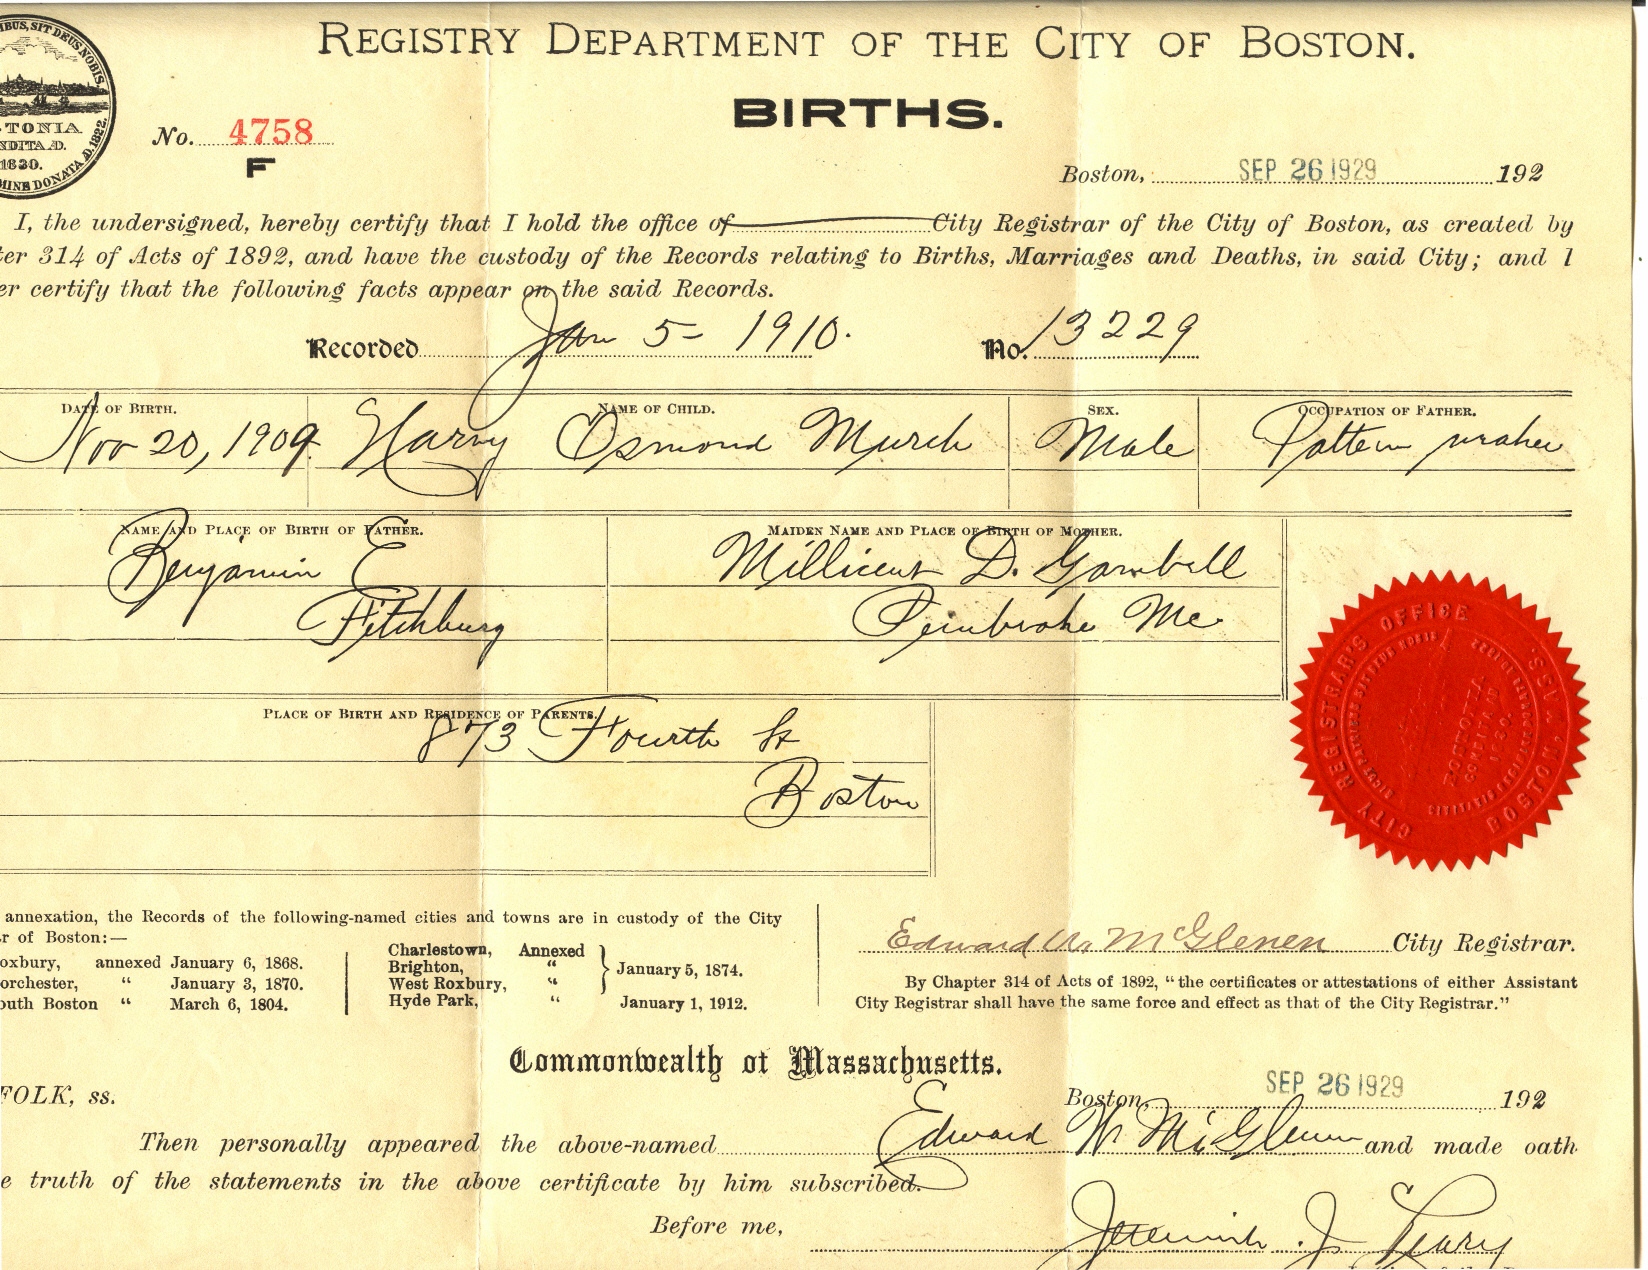 REGISTRY DEPARTMENT OF THE CITY OF BOSTON.
BIRTHS.
IBUS, SIT DEUS NOBIS.
TONIA
NDITA A.D.
1630.
MINE DONATA A.D. 1822.
No. 4758
F
Boston, SEP 26 1929 192
I, the undersigned, hereby certify that I hold the office of City Registrar of the City of Boston, as created by
er 314 of Acts of 1892, and have the custody of the Records relating to Births, Marriages and Deaths, in said City; and I
er certify that the following facts appear on the said Records.
Recorded Jan 5- 1910. No. 13229
DATE OF BIRTH. NAME OF CHILD. SEX. OCCUPATION OF FATHER.
Nov 20, 1909. Harry Osmond Murch Male Pattern maker
NAME AND PLACE OF BIRTH OF FATHER. MAIDEN NAME AND PLACE OF BIRTH OF MOTHER.
Benjamin E Millicent D. Gambell
Fitchburg Pembroke Me.
PLACE OF BIRTH AND RESIDENCE OF PARENTS.
873 Fourth St
Boston
CITY REGISTRAR'S OFFICE
BOSTON, MASS.
annexation, the Records of the following-named cities and towns are in custody of the City
r of Boston:—
oxbury, annexed January 6, 1868.
orchester, “ January 3, 1870.
outh Boston “ March 6, 1804.
Charlestown, Annexed
Brighton, “ January 5, 1874.
West Roxbury, “
Hyde Park, “ January 1, 1912.
Edward W. McGlenen City Registrar.
By Chapter 314 of Acts of 1892, “the certificates or attestations of either Assistant
City Registrar shall have the same force and effect as that of the City Registrar.”
Commonwealth of Massachusetts.
FOLK, ss.
Boston, SEP 26 1929 192
Then personally appeared the above-named Edward W. McGlenen and made oath
e truth of the statements in the above certificate by him subscribed.
Before me,
Jeremiah J. Leary